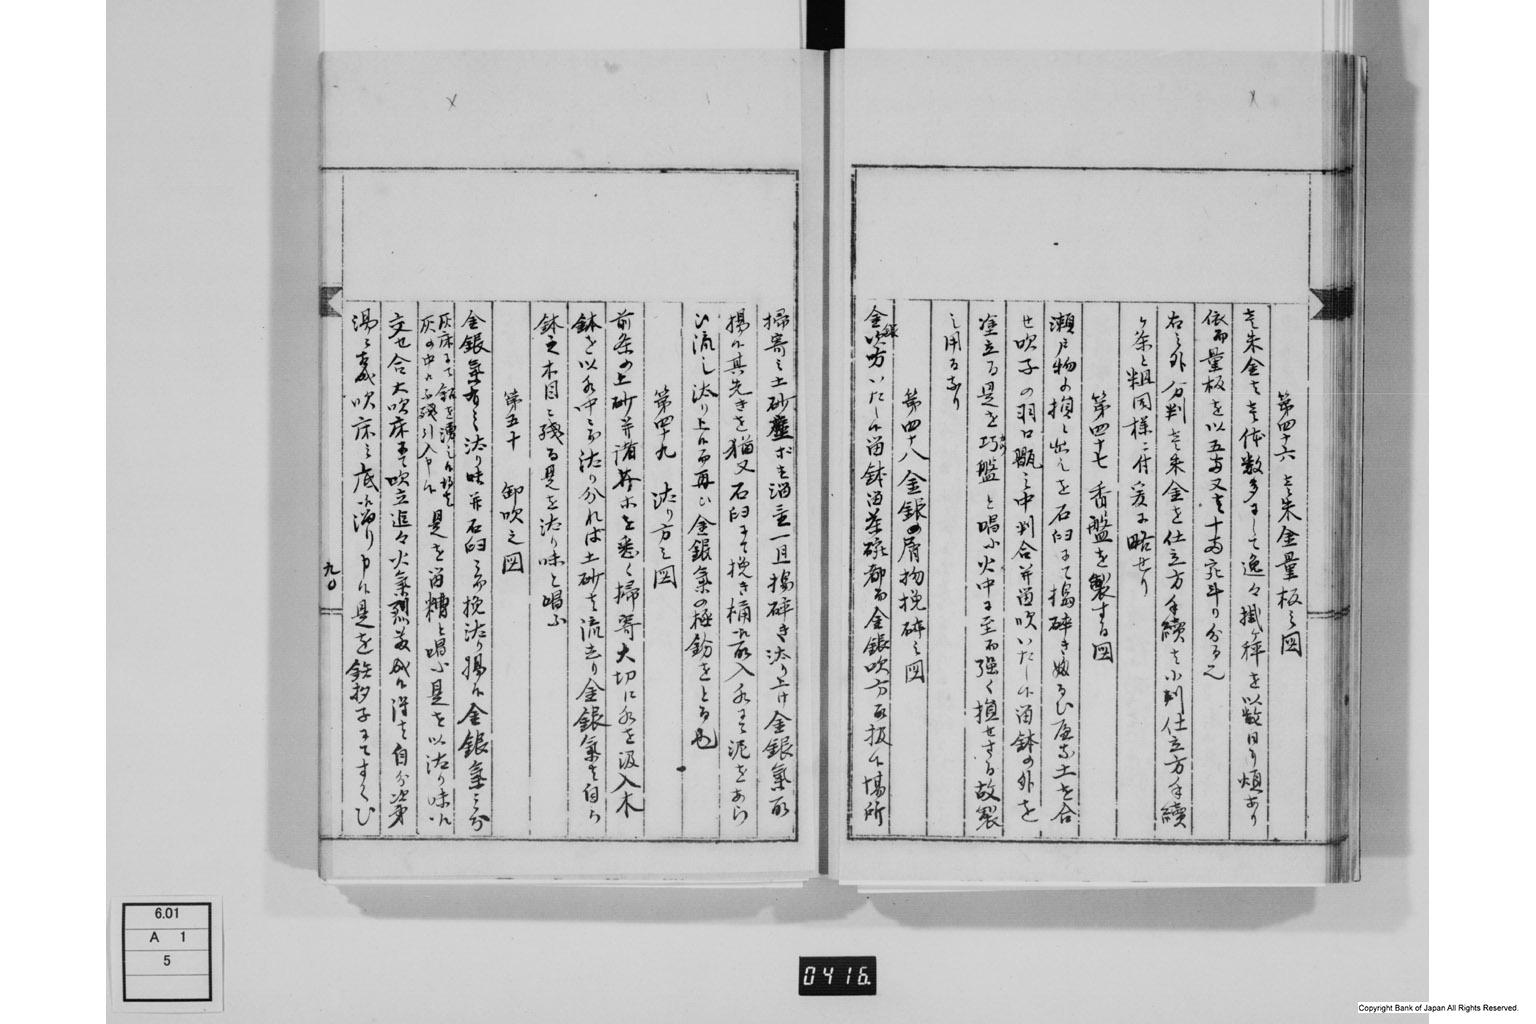 第四十六　壱朱金量板之図
壱朱金者 体数多ニして逸々掛ケ秤を以数日の煩あり
依而量板を以五 又者十 宛斗り分る也
右之外分判壱朱金を仕立方手続者小判仕立方手続
ケ条と粗同様ニ付爰ニ略せり
第四十七　香盤を製する図
瀬戸物の損し 石臼ニて搗砕き 土を合
せ吹子の羽口甑 判合并留吹いたし候留鉢の外を
塗立る是を巧盤と唱ふ火中ニ至而強く損せする故製
し用るなり
第四十八　金銀の屑物挽砕之図
金銀吹方いたし候留鉢留茶碗都而金銀吹方取扱候場所
掃寄之土砂塵 一旦搗砕き汰り上け金銀気取
揚候其先きを猶又石臼ニて挽き桶江取入水ニて泥をあら
ひ流し汰り上候而再ひ金銀気の極粉をとる也
第四十九　汰り方之図
前条の土砂并諸 を悉く掃寄大切に水を汲入木
鉢を以水中ニ而汰り分れは土砂者流去り金銀気者自ら
鉢之木目ニ残る是を汰り味と唱ふ
第五十　卸吹之図
金銀気有之汰り味并石臼ニ而挽汰り揚候金銀気
灰床ニて鉛を湧し
灰の中江不残引入申候是を留糟と唱ふ是を以汰り味江
交せ合大吹床ニて吹立追々火気烈敷成候得者自分
湯ニ成吹床之底江溜り申候是を鉄杓子ニてすくひ
九〇
6.01
A 1
5
0416.
Copyright Bank of Japan All Rights Reserved.